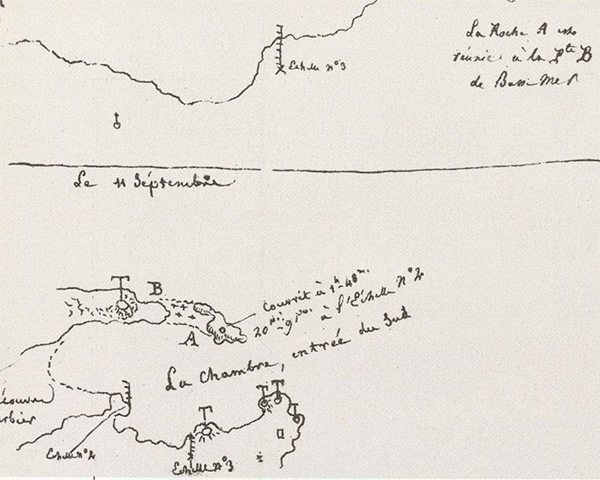 La Roche A est
réunie à la Pte B
de Basse Mer
Echelle n°3
Le 11 Séptembre
B
couvrit à 1h-48m.
20pi-9po. à l'Echelle N°2
A
La Chambre, entrée du Sud
Echelle n°2
Echelle n°3